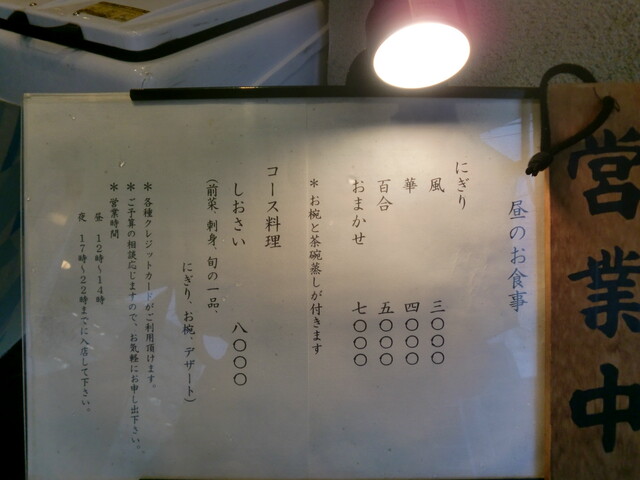 営業中
昼のお食事
にぎり
風 三〇〇〇
華 四〇〇〇
百合 五〇〇〇
おまかせ 七〇〇〇
＊お椀と茶碗蒸しが付きます
コース料理
しおさい 八〇〇〇
（前菜、刺身、旬の一品、
にぎり、お椀、デザート）
＊各種クレジットカードがご利用頂けます。
＊ご予算の相談応じますので、お気軽にお申し出下さい。
＊営業時間
昼 12時～14時
夜 17時～22時までに入店して下さい。